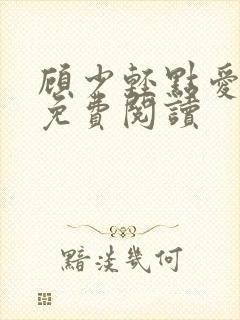 顾少輕點愛
免費閱讀
黯淡幾何